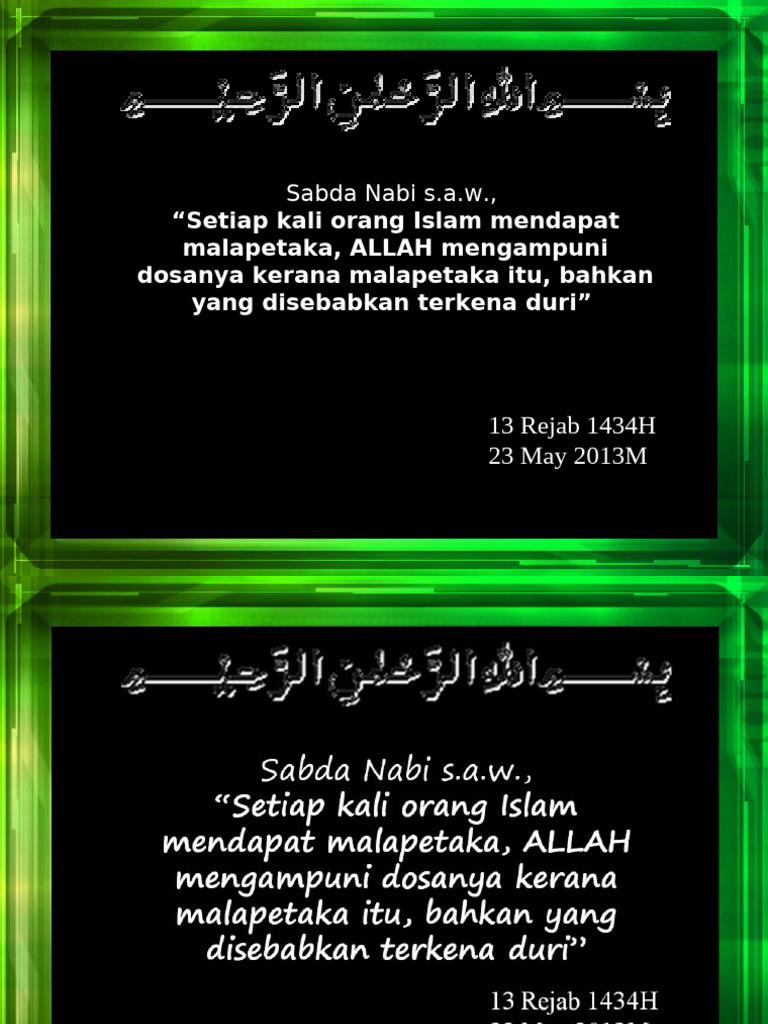 بِسْمِ اللهِ الرَّحْمٰنِ الرَّحِيْمِ
Sabda Nabi s.a.w.,
“Setiap kali orang Islam mendapat
malapetaka, ALLAH mengampuni
dosanya kerana malapetaka itu, bahkan
yang disebabkan terkena duri”
13 Rejab 1434H
23 May 2013M
بِسْمِ اللهِ الرَّحْمٰنِ الرَّحِيْمِ
Sabda Nabi s.a.w.,
“Setiap kali orang Islam
mendapat malapetaka, ALLAH
mengampuni dosanya kerana
malapetaka itu, bahkan yang
disebabkan terkena duri”
13 Rejab 1434H